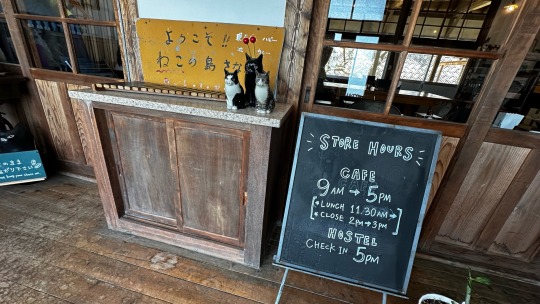 ようこそ!!
ねこの島
STORE HOURS
CAFE
9AM → 5PM
LUNCH 11.30AM →
CLOSE 2PM → 3PM
HOSTEL
CHECK IN 5PM